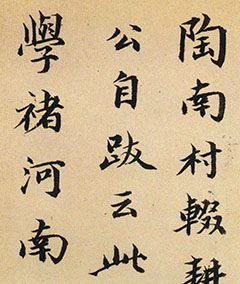 陶南村輟耕
公自跋云此
學褚河南